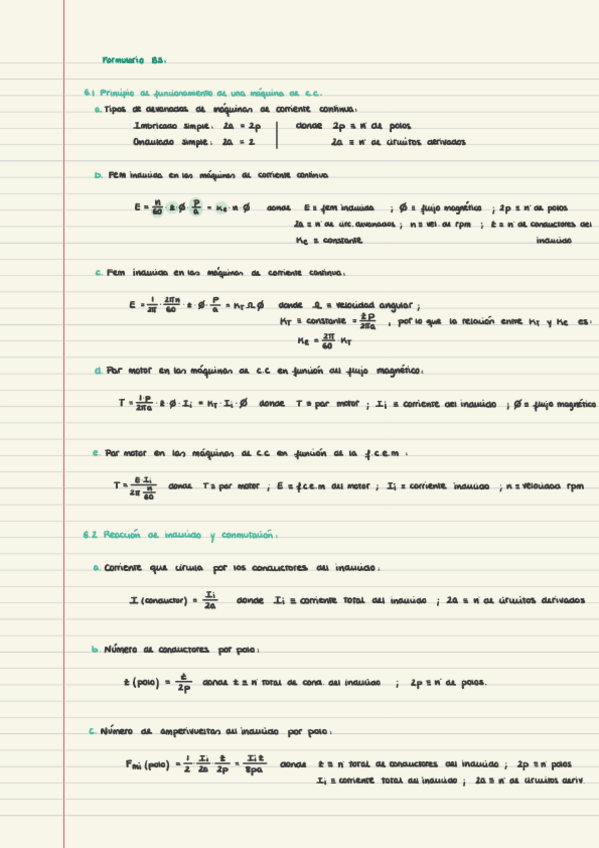 Formulario B3.
6.1 Principio de funcionamiento de una máquina de c.c.
a. Tipos de devanados de máquinas de corriente continua:
Imbricado simple: 2a = 2p donde 2p ≡ nº de polos
Ondulado simple: 2a = 2 2a ≡ nº de circuitos derivados
b. Fem inducida en las máquinas de corriente continua
E = n/60 · z · Ø · p/a = Ke · n · Ø donde E ≡ fem inducida ; Ø ≡ flujo magnético ; 2p ≡ nº de polos
2a ≡ nº de circ. derivados ; n ≡ vel. de rpm ; z ≡ nº de conductores del
Ke ≡ constante inducido
c. Fem inducida en las máquinas de corriente continua:
E = 1/2π · 2πn/60 · z · Ø · p/a = KT Ω Ø donde Ω ≡ velocidad angular ;
KT ≡ constante = z p/2πa , por lo que la relación entre KT y Ke es:
Ke = 2π/60 · KT
d. Par motor en las máquinas de c.c en función del flujo magnético:
T = 1·p/2πa · z · Ø · Ii = KT · Ii · Ø donde T ≡ par motor ; Ii ≡ corriente del inducido ; Ø ≡ flujo magnético
e. Par motor en las máquinas de c.c en función de la f.c.e.m :
T = E·Ii/2π n/60 donde T ≡ par motor ; E ≡ f.c.e.m del motor ; Ii ≡ corriente inducido ; n ≡ velocidad rpm
6.2 Reacción de inducido y conmutación:
a. Corriente que circula por los conductores del inducido:
I (conductor) = Ii/2a donde Ii ≡ corriente total del inducido ; 2a ≡ nº de circuitos derivados
b. Número de conductores por polo:
z (polo) = z/2p donde z ≡ nº total de cond. del inducido ; 2p ≡ nº de polos.
c. Número de amperivueltas del inducido por polo:
Fmi (polo) = 1/2 · Ii/2a · z/2p = Ii z/8pa donde z ≡ nº total de conductores del inducido ; 2p ≡ nº polos
Ii ≡ corriente total del inducido ; 2a ≡ nº de circuitos deriv.